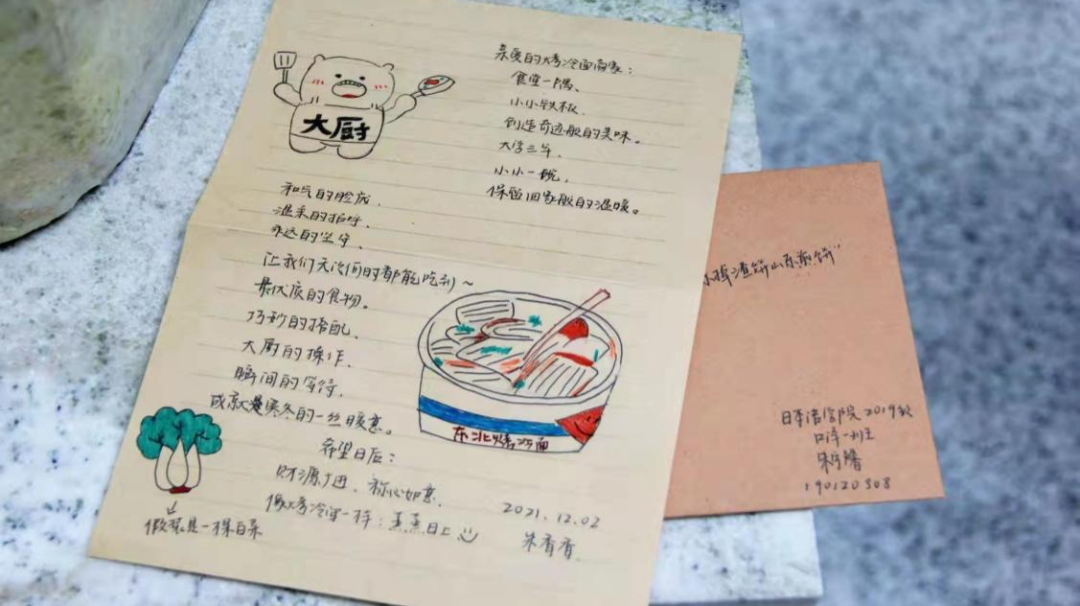 亲爱的烤冷面商家：
食堂一隅、
小小铁板、
创造奇迹般的美味。
大学三年，
小小一碗，
保留回家般的温暖。
大厨
和气的脸庞、
温柔的招呼、
永远的坚守、
让我们无论何时都能吃到～
最优质的食物。
巧妙的搭配、
大厨的操作、
瞬间的等待、
成就寒冬的一丝暖意。
希望日后：
财源广进、称心如意、
像烤冷面一样：蒸蒸日上
东北烤冷面
假装是一棵白菜
2021.12.02
朱香香
小掉渣饼山东煎饼”
日本语学院2019级
日本一班
190120308